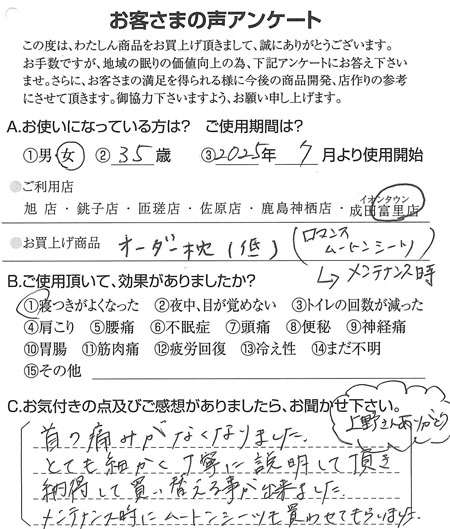 お客さまの声アンケート
この度は、わたしん商品をお買上げ頂きまして、誠にありがとうございます。
お手数ですが、地域の眠りの価値向上の為、下記アンケートにお答え下さい
ませ。さらに、お客さまの満足を得られる様に今後の商品開発、店作りの参考
にさせて頂きます。御協力下さいますよう、お願い申し上げます。
A.お使いになっている方は? ご使用期間は?
①男 女 ②35歳 ③2025年 7月より使用開始
●ご利用店
イオンタウン
旭店・銚子店・匝瑳店・佐原店・鹿島神栖店・成田富里店
●お買上げ商品 オーダー枕(低) (ロマンス ムートンシート)
↳メンテナンス時
B.ご使用頂いて、効果がありましたか?
①寝つきがよくなった ②夜中、目が覚めない ③トイレの回数が減った
④肩こり ⑤腰痛 ⑥不眠症 ⑦頭痛 ⑧便秘 ⑨神経痛
⑩胃腸 ⑪筋肉痛 ⑫疲労回復 ⑬冷え性 ⑭まだ不明
⑮その他
C.お気付きの点及びご感想がありましたら、お聞かせ下さい。
上野さんありがとう
首の痛みがなくなりました。
とても細かく丁寧に説明して頂き
納得して買い替える事が出来ました。
メンテナンス時にムートンシーツも買わせてもらいました。